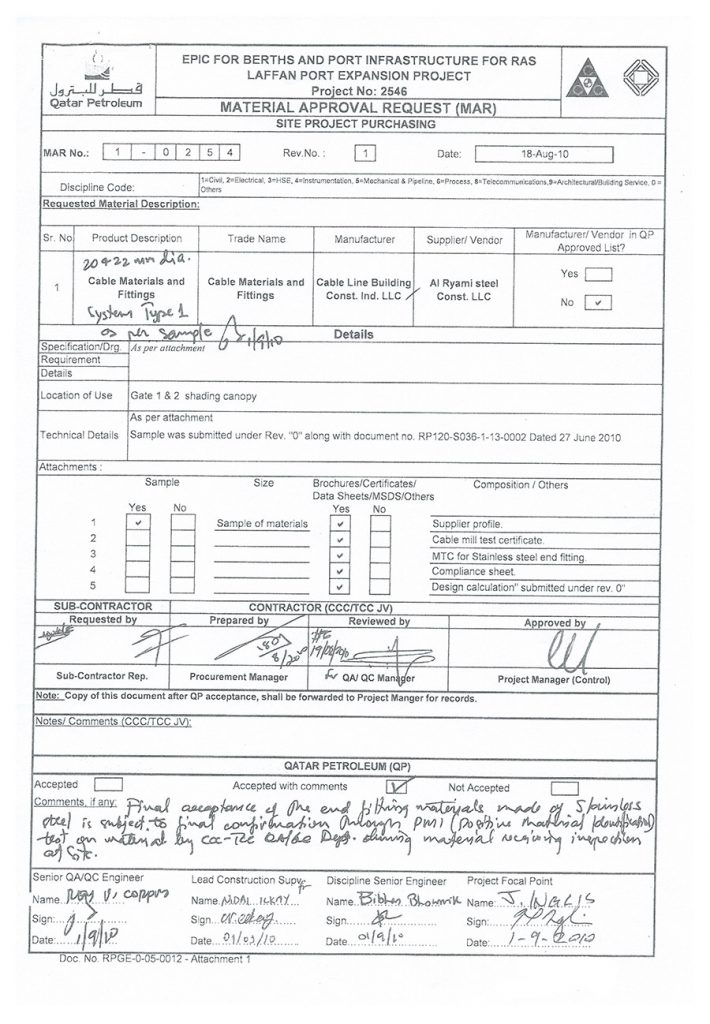 EPIC FOR BERTHS AND PORT INFRASTRUCTURE FOR RAS
LAFFAN PORT EXPANSION PROJECT
Project No: 2546
قطر للبترول
Qatar Petroleum
MATERIAL APPROVAL REQUEST (MAR)
SITE PROJECT PURCHASING
MAR No.: 1 - 0 2 5 4 Rev.No. : 1 Date: 18-Aug-10
Discipline Code: 1=Civil, 2=Electrical, 3=HSE, 4=Instrumentation, 5=Mechanical & Pipeline, 6=Process, 8=Telecommunications,9=Architectural/Building Service, 0 =
Others
Requested Material Description:
Sr. No Product Description Trade Name Manufacturer Supplier/ Vendor Manufacturer/ Vendor in QP
Approved List?
20 & 22 mm dia.
1 Cable Materials and Fittings Cable Materials and Fittings Cable Line Building Const. Ind. LLC Al Ryami steel Const. LLC Yes
No ✓
System Type 1
as per sample 1/9/10
Details
Specification/Drg. As per attachment
Requirement
Details
Location of Use Gate 1 & 2 shading canopy
As per attachment
Technical Details Sample was submitted under Rev. "0" along with document no. RP120-S036-1-13-0002 Dated 27 June 2010
Attachments :
Sample Size Brochures/Certificates/ Composition / Others
Data Sheets/MSDS/Others
Yes No Yes No
1 ✓ Sample of materials ✓ Supplier profile.
2 ✓ Cable mill test certificate.
3 ✓ MTC for Stainless steel end fitting.
4 ✓ Compliance sheet.
5 ✓ Design calculation" submitted under rev. 0"
SUB-CONTRACTOR CONTRACTOR (CCC/TCC JV)
Requested by Prepared by Reviewed by Approved by
19/08/2010
Sub-Contractor Rep. Procurement Manager for QA/ QC Manager Project Manager (Control)
Note: Copy of this document after QP acceptance, shall be forwarded to Project Manger for records.
Notes/ Comments (CCC/TCC JV):
QATAR PETROLEUM (QP)
Accepted Accepted with comments ✓ Not Accepted
Comments, if any: Final acceptance of the end fitting materials made of Stainless
steel is subject to final confirmation through PMI (Positive Material Identification)
test on material by CCC-TCC QA/QC Dept. during material receiving inspection
at Site.
Senior QA/QC Engineer Lead Construction Supv Discipline Senior Engineer Project Focal Point
Name. Roy V. Corpus Name. Name. Bibhas Bhowmik Name: J. INGLIS
Sign: Sign Sign. Sign:
Date: 1/9/10 Date 01/09/10 Date 01/9/10 Date: 1-9-2010
Doc. No. RPGE-0-05-0012 - Attachment 1